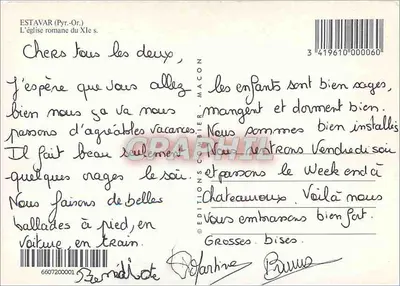 ESTAVAR (Pyr.-Or.)
L'église romane du XIe s.
3 419610 000060
Chers tous les deux,
J'espère que vous allez
bien nous ça va nous
passons d'agréables vacances.
Il fait beau seulement
quelques nages le soir.
Nous faisons de belles
ballades à pied, en
voiture, en train.
les enfants sont bien sages,
mangent et dorment bien.
Nous sommes bien installés
Nous rentrons Vendredi soir
et passons le Week end à
Chateauroux. Voilà nous
vous embrassons bien fort.
GROSSES. bises.
EDITIONS CELLARD-BIER - MACON
6607200001
Bénédicte
Martine
Bruno